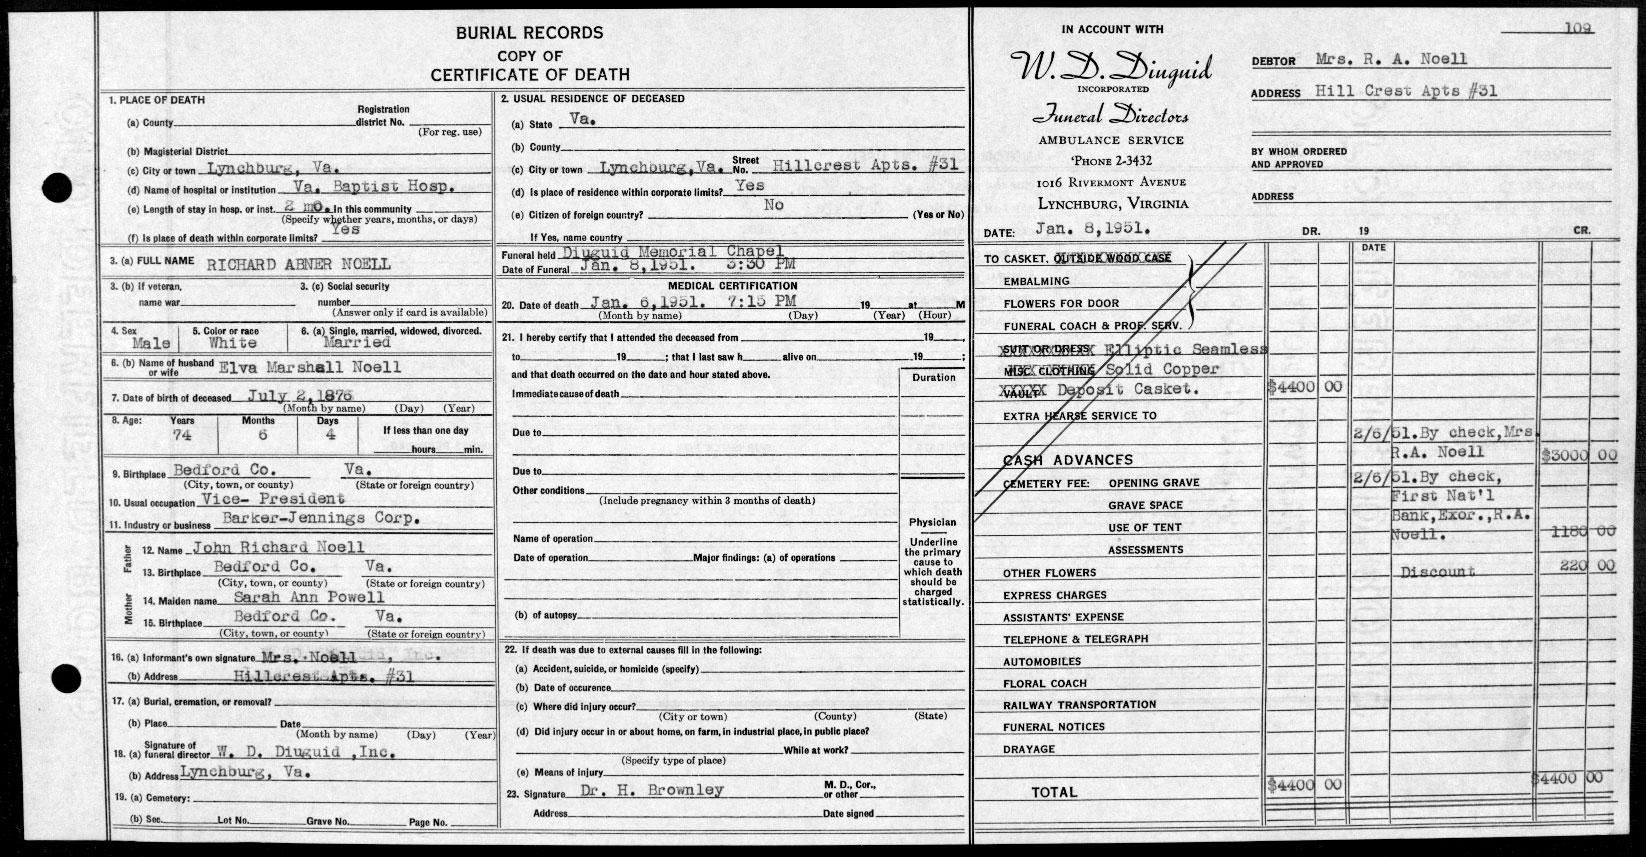 BURIAL RECORDS
COPY OF
CERTIFICATE OF DEATH
1. PLACE OF DEATH
(a) County Registration district No.
(For reg. use)
(b) Magisterial District
(c) City or town Lynchburg, Va.
(d) Name of hospital or institution Va. Baptist Hosp.
(e) Length of stay in hosp. or inst. 2 mo. In this community
(Specify whether years, months, or days)
(f) Is place of death within corporate limits? Yes
3. (a) FULL NAME RICHARD ABNER NOELL
3. (b) If veteran, name war
3. (c) Social security number
(Answer only if card is available)
4. Sex Male
5. Color or race White
6. (a) Single, married, widowed, divorced. Married
6. (b) Name of husband or wife Elva Marshall Noell
7. Date of birth of deceased July 2,1876
(Month by name) (Day) (Year)
8. Age: Years Months Days If less than one day
74 6 4 hours min.
9. Birthplace Bedford Co. Va.
(City, town, or county) (State or foreign country)
10. Usual occupation Vice- President
11. Industry or business Barker-Jennings Corp.
Father
12. Name John Richard Noell
13. Birthplace Bedford Co. Va.
(City, town, or county) (State or foreign country)
Mother
14. Maiden name Sarah Ann Powell
15. Birthplace Bedford Co. Va.
(City, town, or county) (State or foreign country)
16. (a) Informant's own signature Mrs. Noell
(b) Address Hillcrest Apts. #31
17. (a) Burial, cremation, or removal?
(b) Place Date
(Month by name) (Day) (Year)
18. (a) Signature of funeral director W. D. Diuguid ,Inc.
(b) Address Lynchburg, Va.
19. (a) Cemetery:
(b) Sec. Lot No. Grave No. Page No.
2. USUAL RESIDENCE OF DECEASED
(a) State Va.
(b) County
(c) City or town Lynchburg,Va. Street No. Hillcrest Apts. #31
(d) Is place of residence within corporate limits? Yes
(e) Citizen of foreign country? No (Yes or No)
If Yes, name country
Funeral held Diuguid Memorial Chapel
Date of Funeral Jan. 8,1951. 3:30 PM
MEDICAL CERTIFICATION
20. Date of death Jan. 6,1951. 7:15 PM 19 at M
(Month by name) (Day) (Year) (Hour)
21. I hereby certify that I attended the deceased from 19 ,
to 19 ; that I last saw h alive on 19 ;
and that death occurred on the date and hour stated above.
Duration
Immediate cause of death
Due to
Due to
Other conditions
(Include pregnancy within 3 months of death)
Name of operation
Date of operation Major findings: (a) of operations
(b) of autopsy
Physician
Underline
the primary
cause to
which death
should be
charged
statistically.
22. If death was due to external causes fill in the following:
(a) Accident, suicide, or homicide (specify)
(b) Date of occurence
(c) Where did injury occur?
(City or town) (County) (State)
(d) Did injury occur in or about home, on farm, in industrial place, in public place?
While at work?
(Specify type of place)
(e) Means of injury
23. Signature Dr. H. Brownley M. D., Cor., or other
Address Date signed
109
IN ACCOUNT WITH
W. D. Diuguid
INCORPORATED
Funeral Directors
AMBULANCE SERVICE
'PHONE 2-3432
1016 RIVERMONT AVENUE
LYNCHBURG, VIRGINIA
DATE: Jan. 8,1951.
DEBTOR Mrs. R. A. Noell
ADDRESS Hill Crest Apts #31
BY WHOM ORDERED
AND APPROVED
ADDRESS
DR. 19 CR.
DATE
TO CASKET. OUTSIDE WOOD CASE
EMBALMING
FLOWERS FOR DOOR
FUNERAL COACH & PROF. SERV.
SUIT OR DRESS Elliptic Seamless
MISC. CLOTHING Solid Copper
VAULT Deposit Casket. $4400 00
EXTRA HEARSE SERVICE TO
2/6/51.By check,Mrs.
R.A. Noell $3000 00
CASH ADVANCES
2/6/51.By check,
CEMETERY FEE: OPENING GRAVE
First Nat'l
GRAVE SPACE
Bank,Exor.,R.A.
USE OF TENT
Noell. 1180 00
ASSESSMENTS
OTHER FLOWERS Discount 220 00
EXPRESS CHARGES
ASSISTANTS' EXPENSE
TELEPHONE & TELEGRAPH
AUTOMOBILES
FLORAL COACH
RAILWAY TRANSPORTATION
FUNERAL NOTICES
DRAYAGE
TOTAL $4400 00 $4400 00